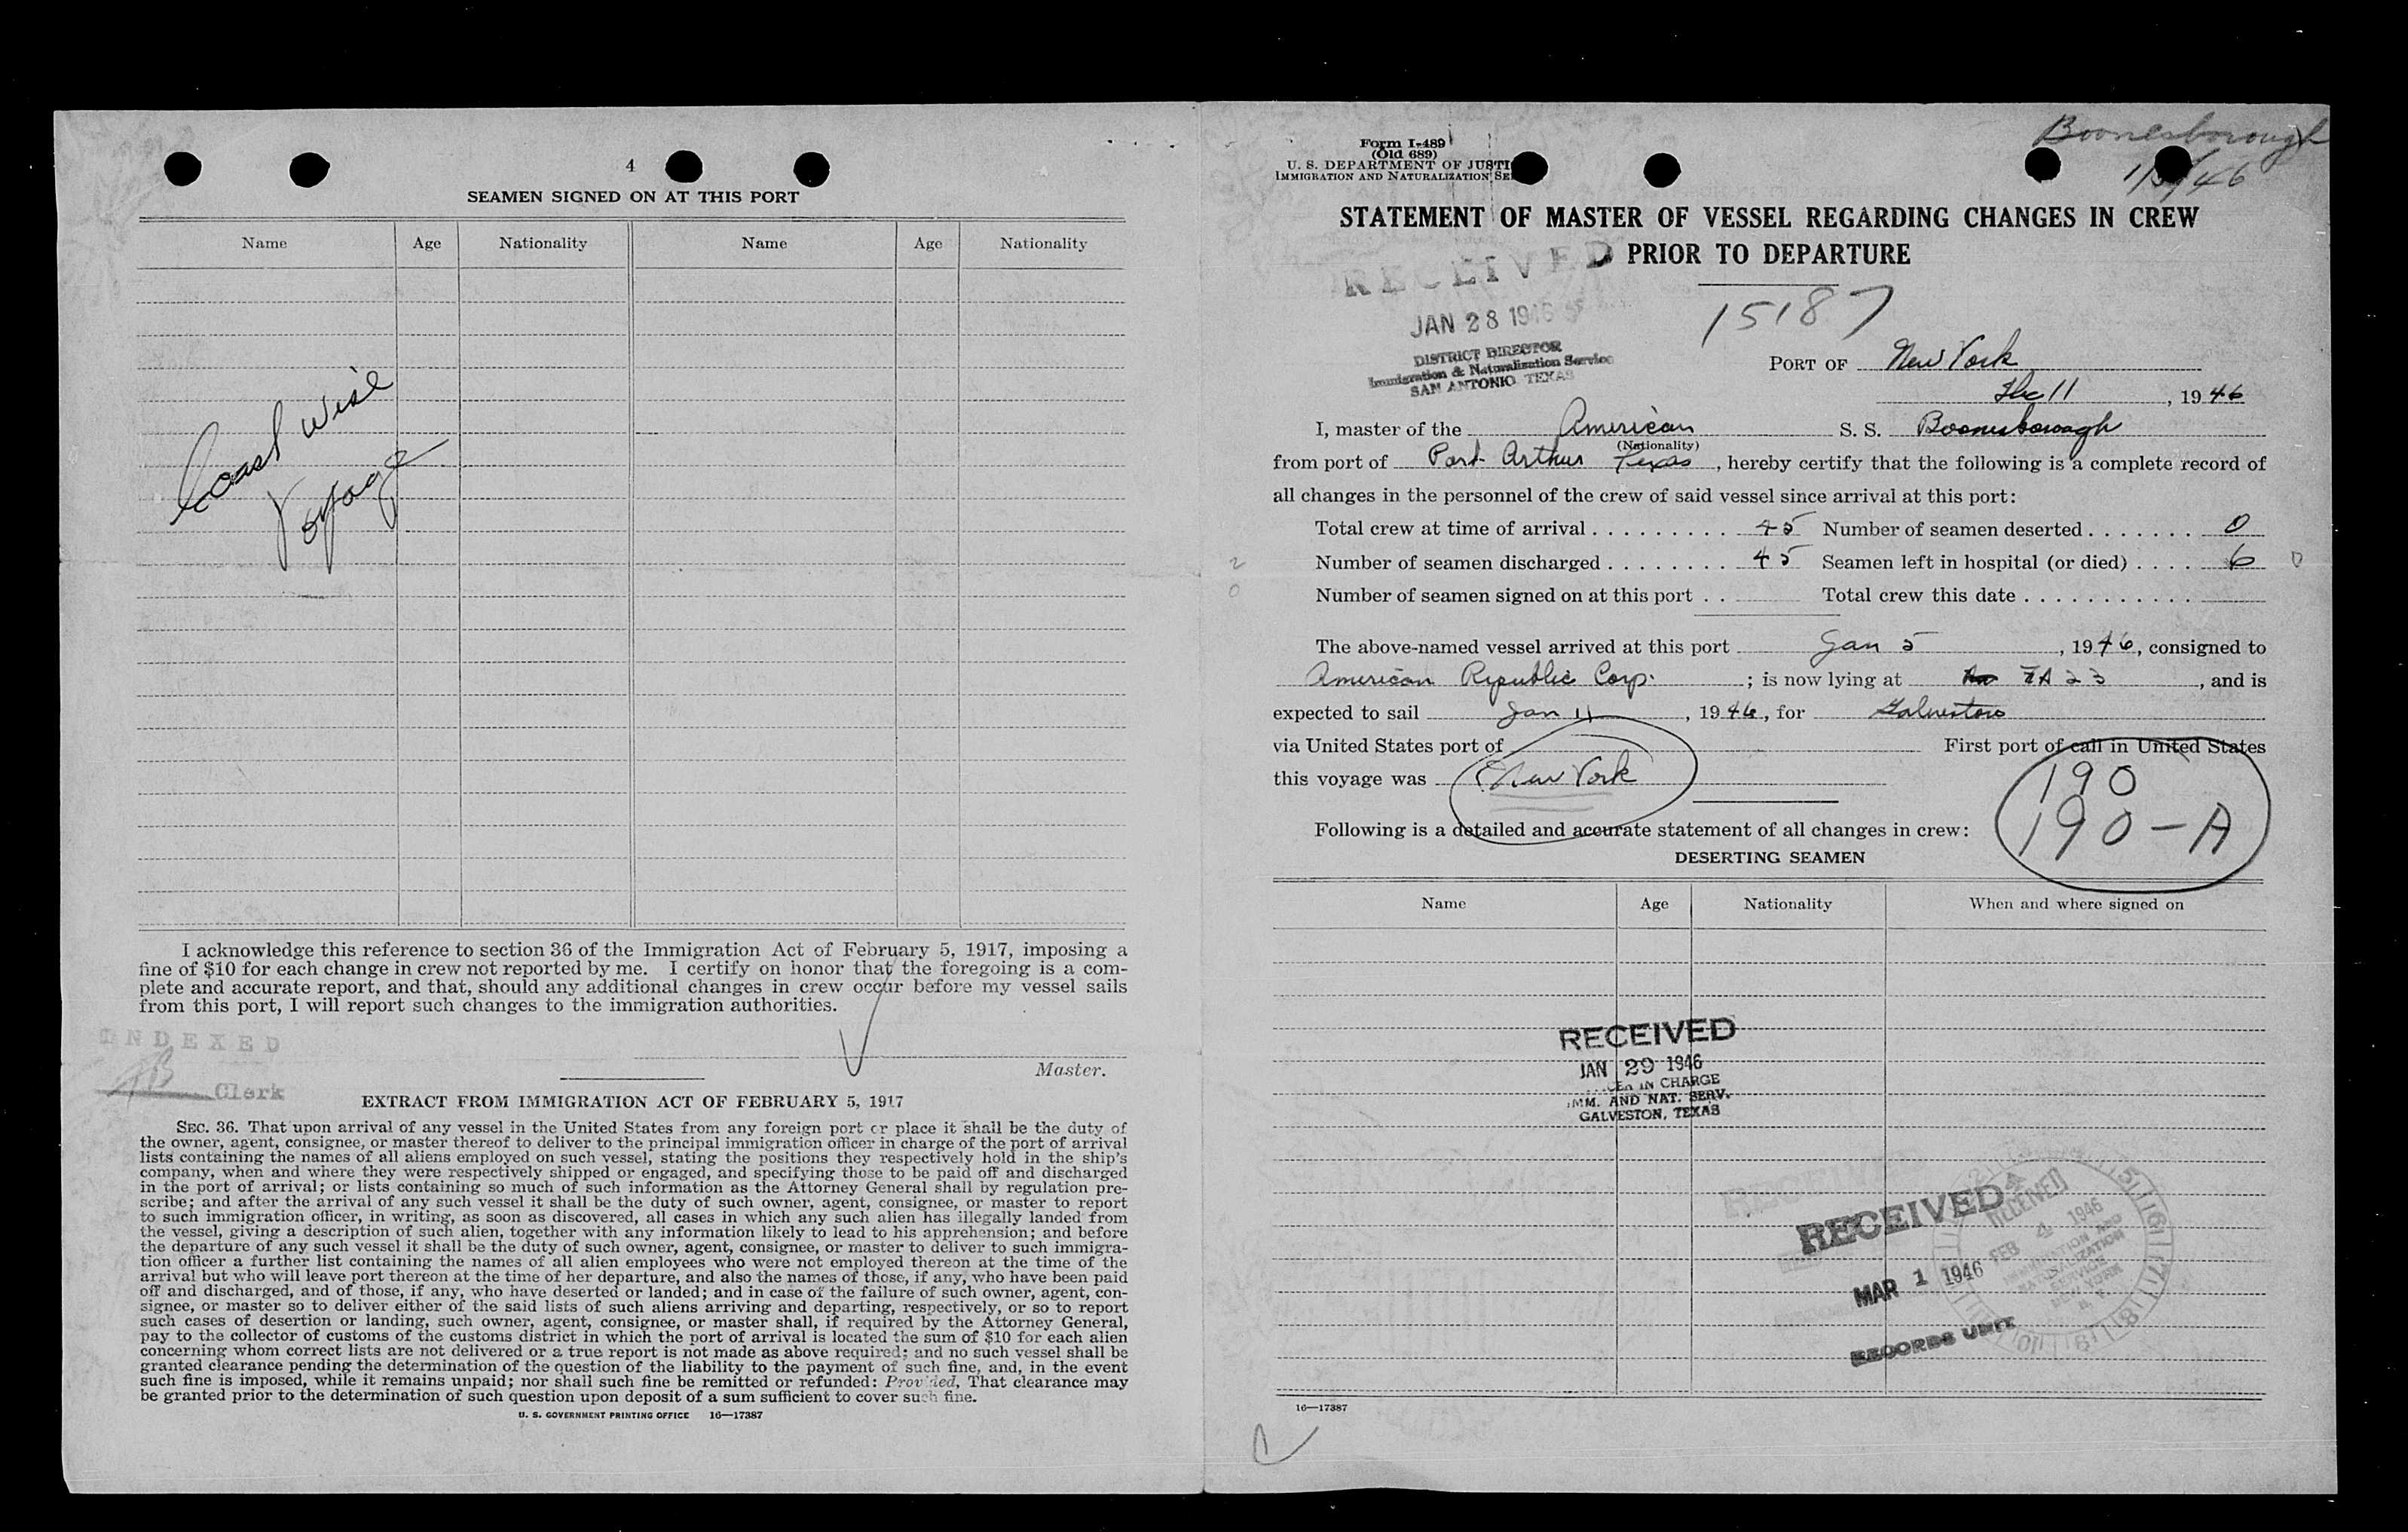 4
SEAMEN SIGNED ON AT THIS PORT
Name Age Nationality Name Age Nationality
Coast wise
Voyage
I acknowledge this reference to section 36 of the Immigration Act of February 5, 1917, imposing a
fine of $10 for each change in crew not reported by me. I certify on honor that the foregoing is a com-
plete and accurate report, and that, should any additional changes in crew occur before my vessel sails
from this port, I will report such changes to the immigration authorities.
INDEXED
Clerk
Master.
EXTRACT FROM IMMIGRATION ACT OF FEBRUARY 5, 1917
SEC. 36. That upon arrival of any vessel in the United States from any foreign port or place it shall be the duty of
the owner, agent, consignee, or master thereof to deliver to the principal immigration officer in charge of the port of arrival
lists containing the names of all aliens employed on such vessel, stating the positions they respectively hold in the ship's
company, when and where they were respectively shipped or engaged, and specifying those to be paid off and discharged
in the port of arrival; or lists containing so much of such information as the Attorney General shall by regulation pre-
scribe; and after the arrival of any such vessel it shall be the duty of such owner, agent, consignee, or master to report
to such immigration officer, in writing, as soon as discovered, all cases in which any such alien has illegally landed from
the vessel, giving a description of such alien, together with any information likely to lead to his apprehension; and before
the departure of any such vessel it shall be the duty of such owner, agent, consignee, or master to deliver to such immigra-
tion officer a further list containing the names of all alien employees who were not employed thereon at the time of the
arrival but who will leave port thereon at the time of her departure, and also the names of those, if any, who have been paid
off and discharged, and of those, if any, who have deserted or landed; and in case of the failure of such owner, agent, con-
signee, or master so to deliver either of the said lists of such aliens arriving and departing, respectively, or so to report
such cases of desertion or landing, such owner, agent, consignee, or master shall, if required by the Attorney General,
pay to the collector of customs of the customs district in which the port of arrival is located the sum of $10 for each alien
concerning whom correct lists are not delivered or a true report is not made as above required; and no such vessel shall be
granted clearance pending the determination of the question of the liability to the payment of such fine, and, in the event
such fine is imposed, while it remains unpaid; nor shall such fine be remitted or refunded: Provided, That clearance may
be granted prior to the determination of such question upon deposit of a sum sufficient to cover such fine.
U. S. GOVERNMENT PRINTING OFFICE 16—17387
Boonesborough
Form I-489
(Old 689)
U. S. DEPARTMENT OF JUSTI
IMMIGRATION AND NATURALIZATION SE
STATEMENT OF MASTER OF VESSEL REGARDING CHANGES IN CREW
PRIOR TO DEPARTURE
RECEIVED
JAN 28 1946
DISTRICT DIRECTOR
Immigration & Naturalization Service
SAN ANTONIO TEXAS
15187
PORT OF New York
11, 1946
I, master of the American S. S. Boonesborough
(Nationality)
from port of Port Arthur Texas, hereby certify that the following is a complete record of
all changes in the personnel of the crew of said vessel since arrival at this port:
Total crew at time of arrival . . . . . . . . . . 45 Number of seamen deserted . . . . . . . 0
2 Number of seamen discharged . . . . . . . . 45 Seamen left in hospital (or died) . . . . 6 0
0 Number of seamen signed on at this port . . Total crew this date . . . . . . . . . . .
The above-named vessel arrived at this port Jan 5, 1946, consigned to
American Republic Corp. ; is now lying at 23, and is
expected to sail Jan 11, 1946, for Galveston
via United States port of First port of call in United States
this voyage was New York
190
190-A
Following is a detailed and accurate statement of all changes in crew:
DESERTING SEAMEN
Name Age Nationality When and where signed on
RECEIVED
JAN 29 1946
IN CHARGE
IMM. AND NAT. SERV.
GALVESTON, TEXAS
RECEIVED
MAR 1 1946
RECORDS UNIT
RECEIVED
FEB 4 1946
16—17387